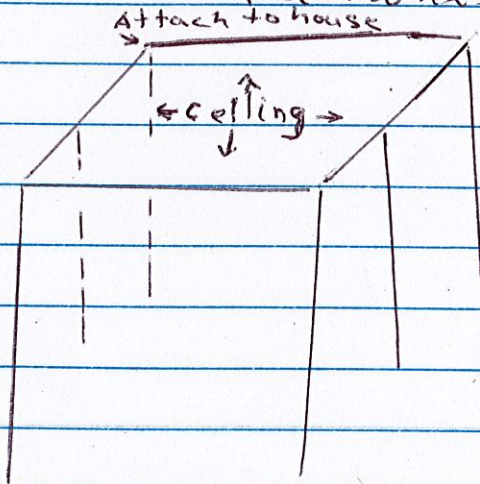 Attach to house
celling